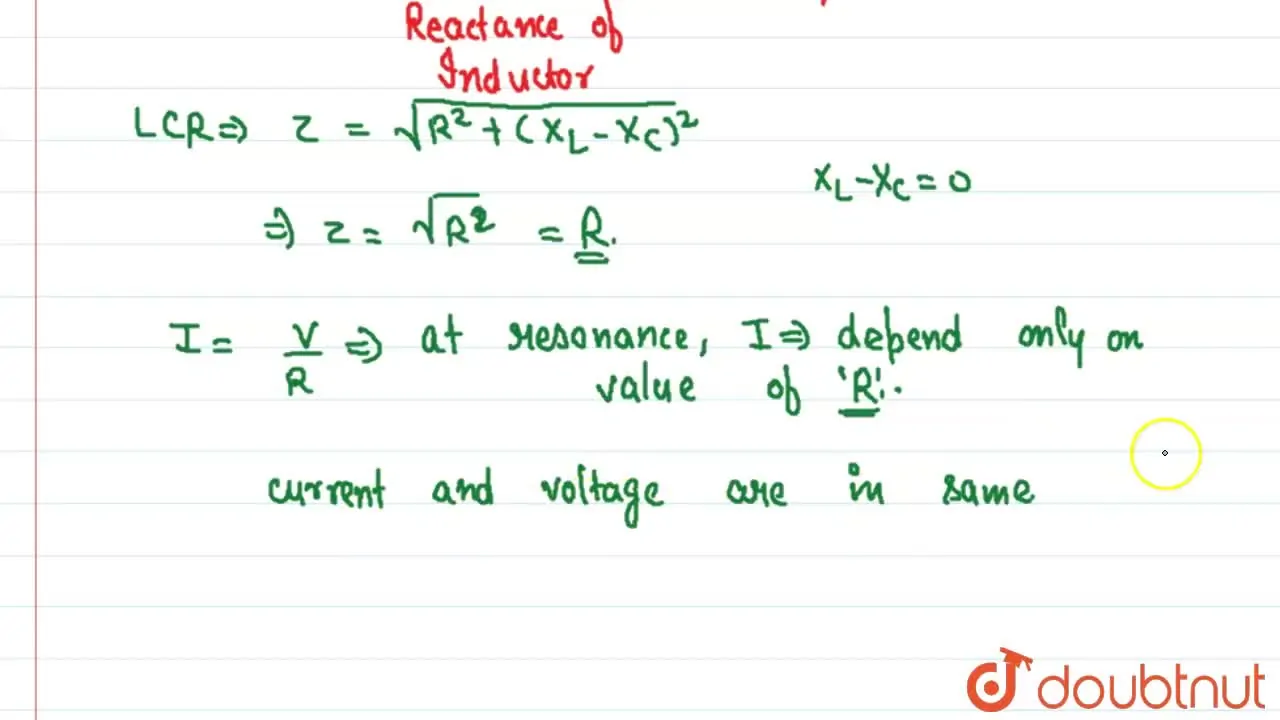 Reactance of
Inductor
LCR⇒ Z = √R² + (X_L - X_C)²
X_L - X_C = 0
⇒ Z = √R² = R.
I = V/R ⇒ at resonance, I ⇒ depend only on
value of 'R'.
current and voltage are in same
doubtnut